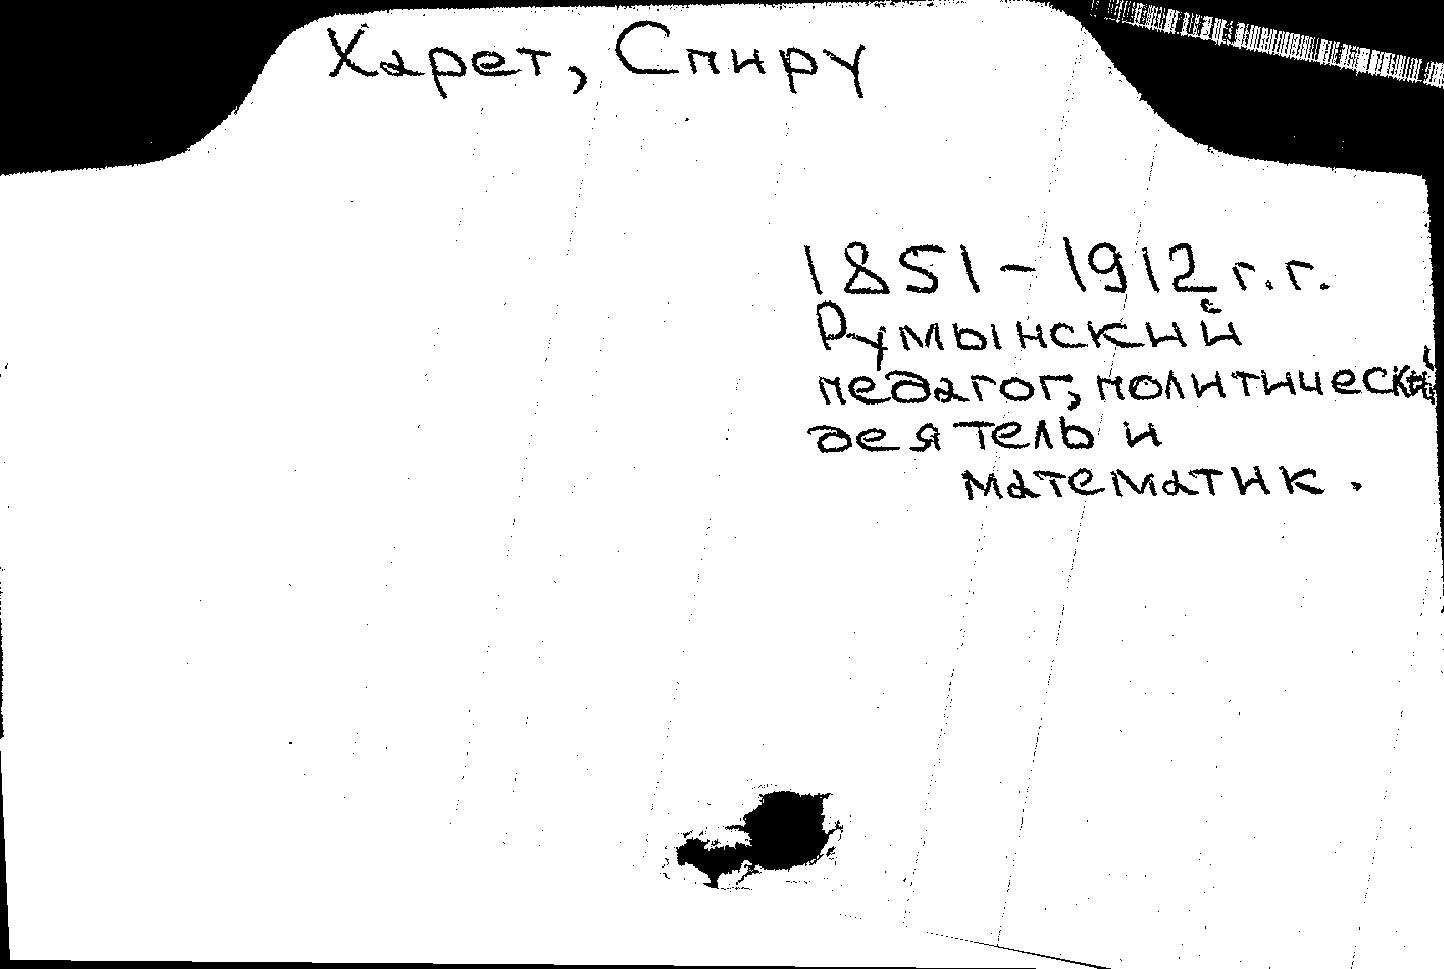 Харет, Спиру
1851-1912 г.г.
Румынский
педагог, политический
деятель и
математик.